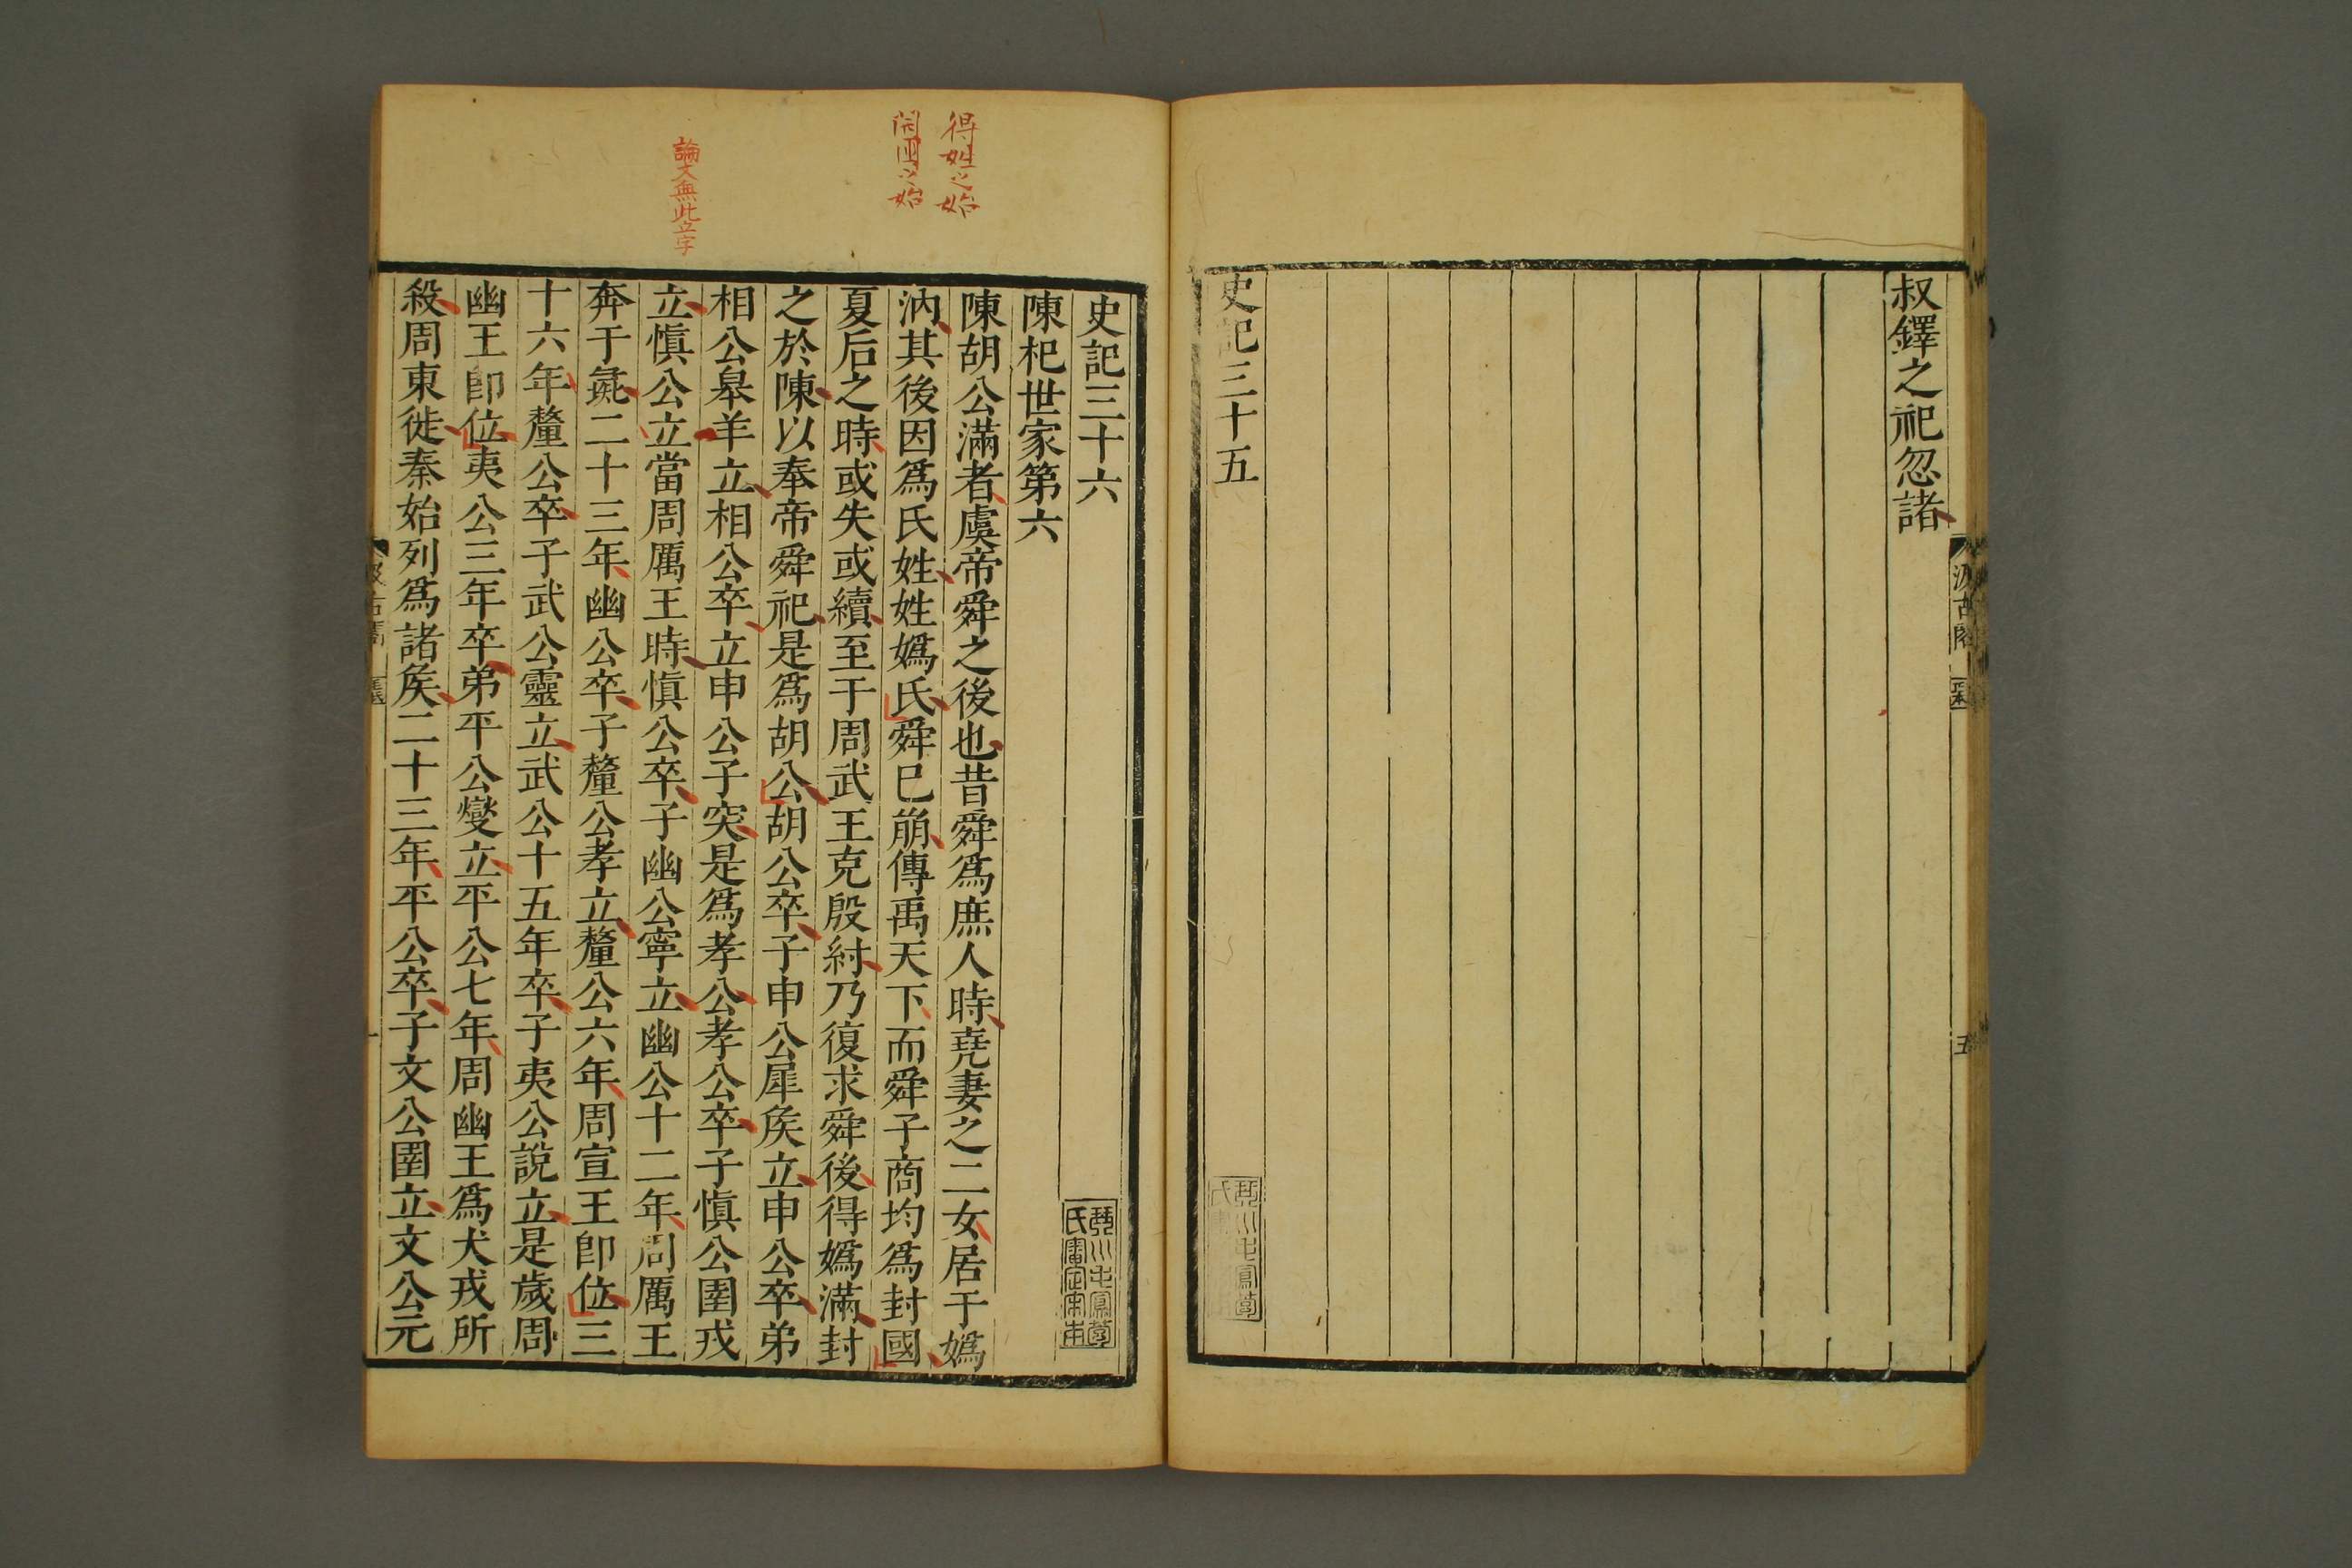 叔鐸之祀忽諸
史記三十五
汲古閣
五
得姓之始
開國之始
論文無此立字
史記三十六
陳杞世家第六
陳胡公滿者虞帝舜之後也昔舜爲庶人時堯妻之二女居于嬀
汭其後因爲氏姓姓嬀氏舜巳崩傳禹天下而舜子商均爲封國
夏后之時或失或續至于周武王克殷紂乃復求舜後得嬀滿封
之於陳以奉帝舜祀是爲胡公胡公卒子申公犀矦立申公卒弟
相公皋羊立相公卒立申公子突是爲孝公孝公卒子愼公圉戎
立愼公立當周厲王時愼公卒子幽公寧立幽公十二年周厲王
奔于彘二十三年幽公卒子釐公孝立釐公六年周宣王卽位三
十六年釐公卒子武公靈立武公十五年卒子夷公說立是歲周
幽王卽位夷公三年卒弟平公燮立平公七年周幽王爲犬戎所
殺周東徙秦始列爲諸矦二十三年平公卒子文公圉立文公元
琴川毛鳳苞
氏審定宋本